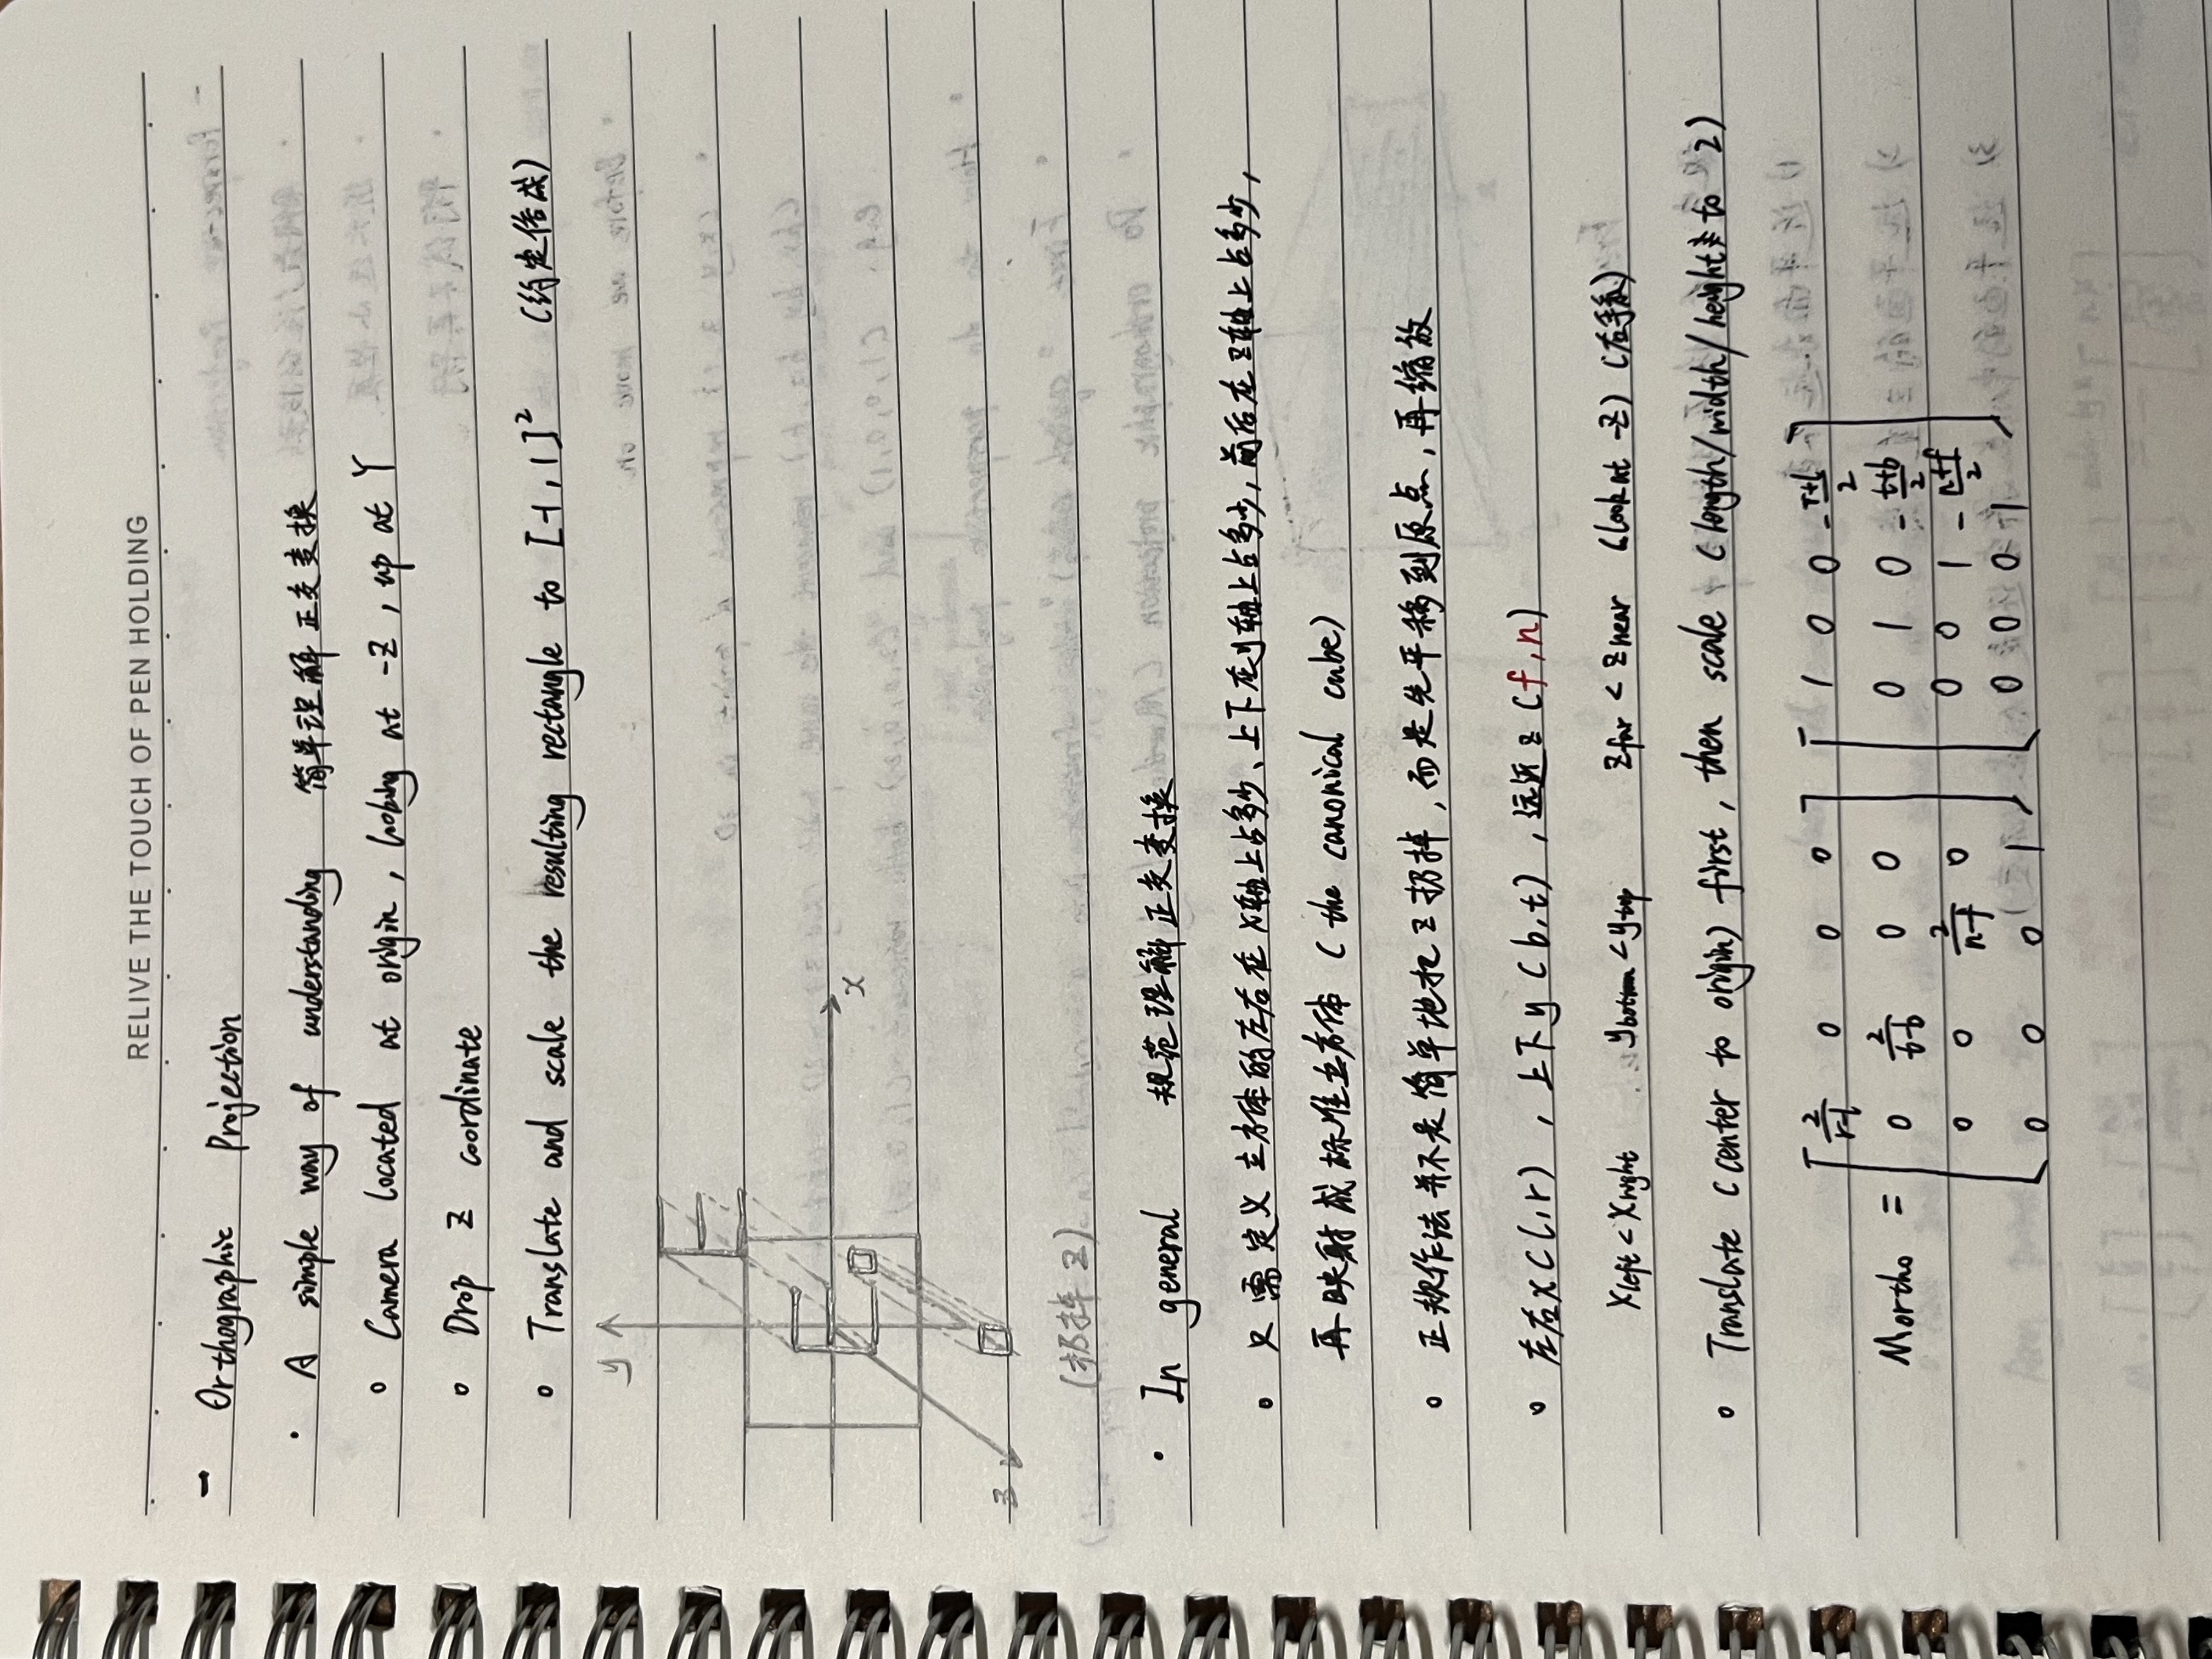 RELIVE THE TOUCH OF PEN HOLDING
- Orthographic Projection
· A simple way of understanding 简单理解正交变换
o Camera located at origin, looking at -Z, up at Y
o Drop Z coordinate
o Translate and scale the resulting rectangle to [-1,1]² (约定俗成)
y
x
z
(扔掉 Z)
· In general 规范理解正交变换
o 只需定义立方体的左右在X轴上占多少、上下在y轴上占多少,前后在z轴上占多少,
再映射成标准立方体 (the canonical cube)
o 正规作法并不是简单地把z扔掉,而是先平移到原点,再缩放
o 左右x(l,r), 上下y(b,t), 远近z(f,n)
Xleft<Xright Ybottom<Ytop Zfar<Znear (look at -Z) (右手系)
o Translate (center to origin) first, then scale (length/width/height to 2)
Mortho = [2/r-l 0 0 0] [1 0 0 -r+l/2]
[0 2/t-b 0 0] [0 1 0 -t+b/2]
[0 0 2/n-f 0] [0 0 1 -n+f/2]
[0 0 0 1] [0 0 0 1]